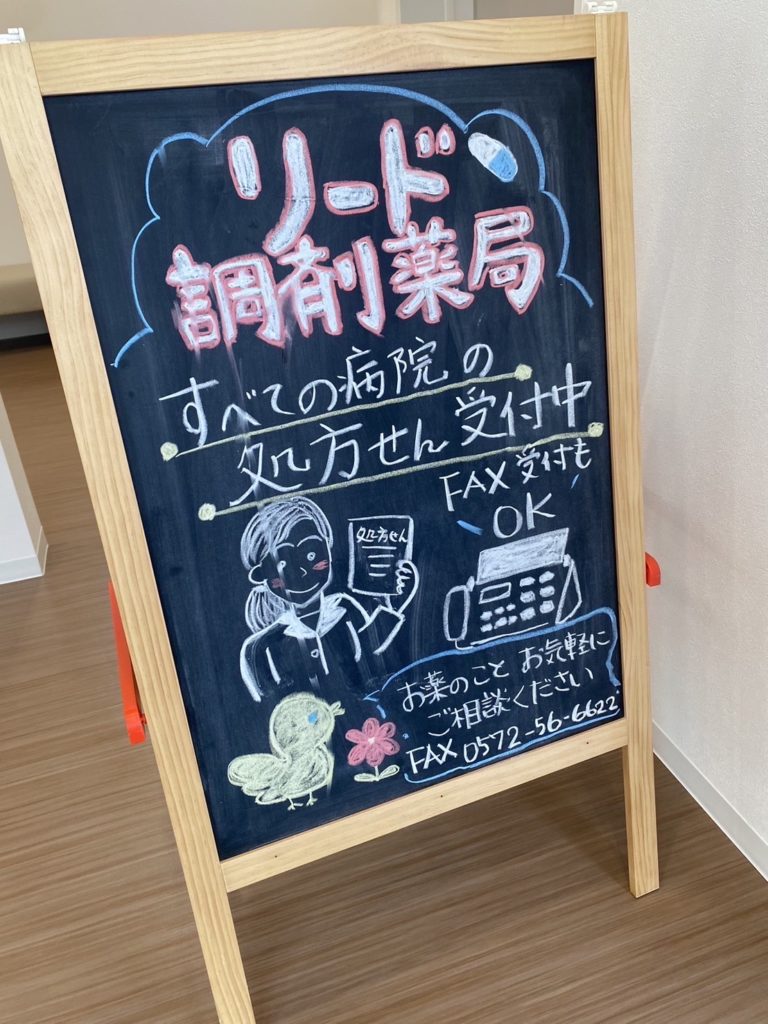 リード
調剤薬局
すべての病院の
処方せん受付中
FAX受付も
OK
処方せん
お薬のこと お気軽に
ご相談ください
FAX 0572-56-6622